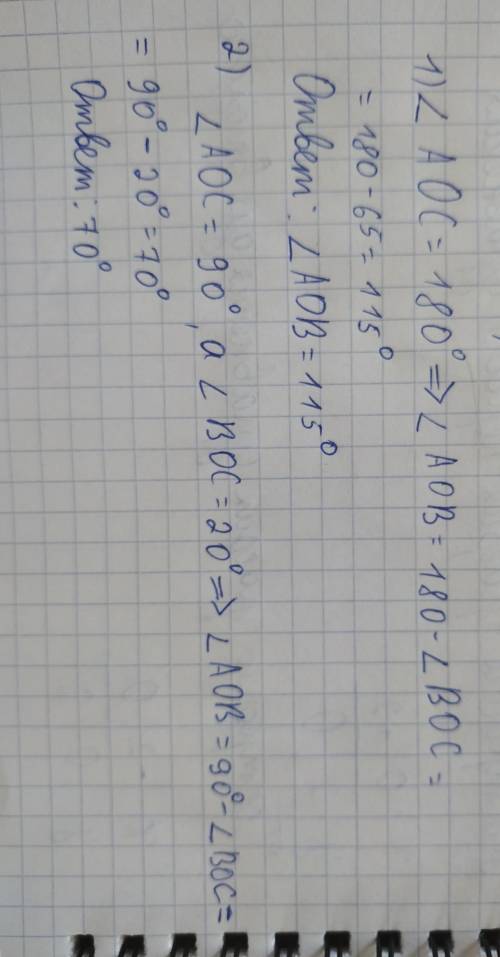 1) ∠ AOC = 180° => ∠ AOB = 180 - ∠ BOC =
= 180 - 65 = 115°
Ответ: ∠ AOB = 115°
2) ∠ AOC = 90°, а ∠ BOC = 20° => ∠ AOB = 90° - ∠ BOC =
= 90° - 20° = 70°
Ответ: 70°